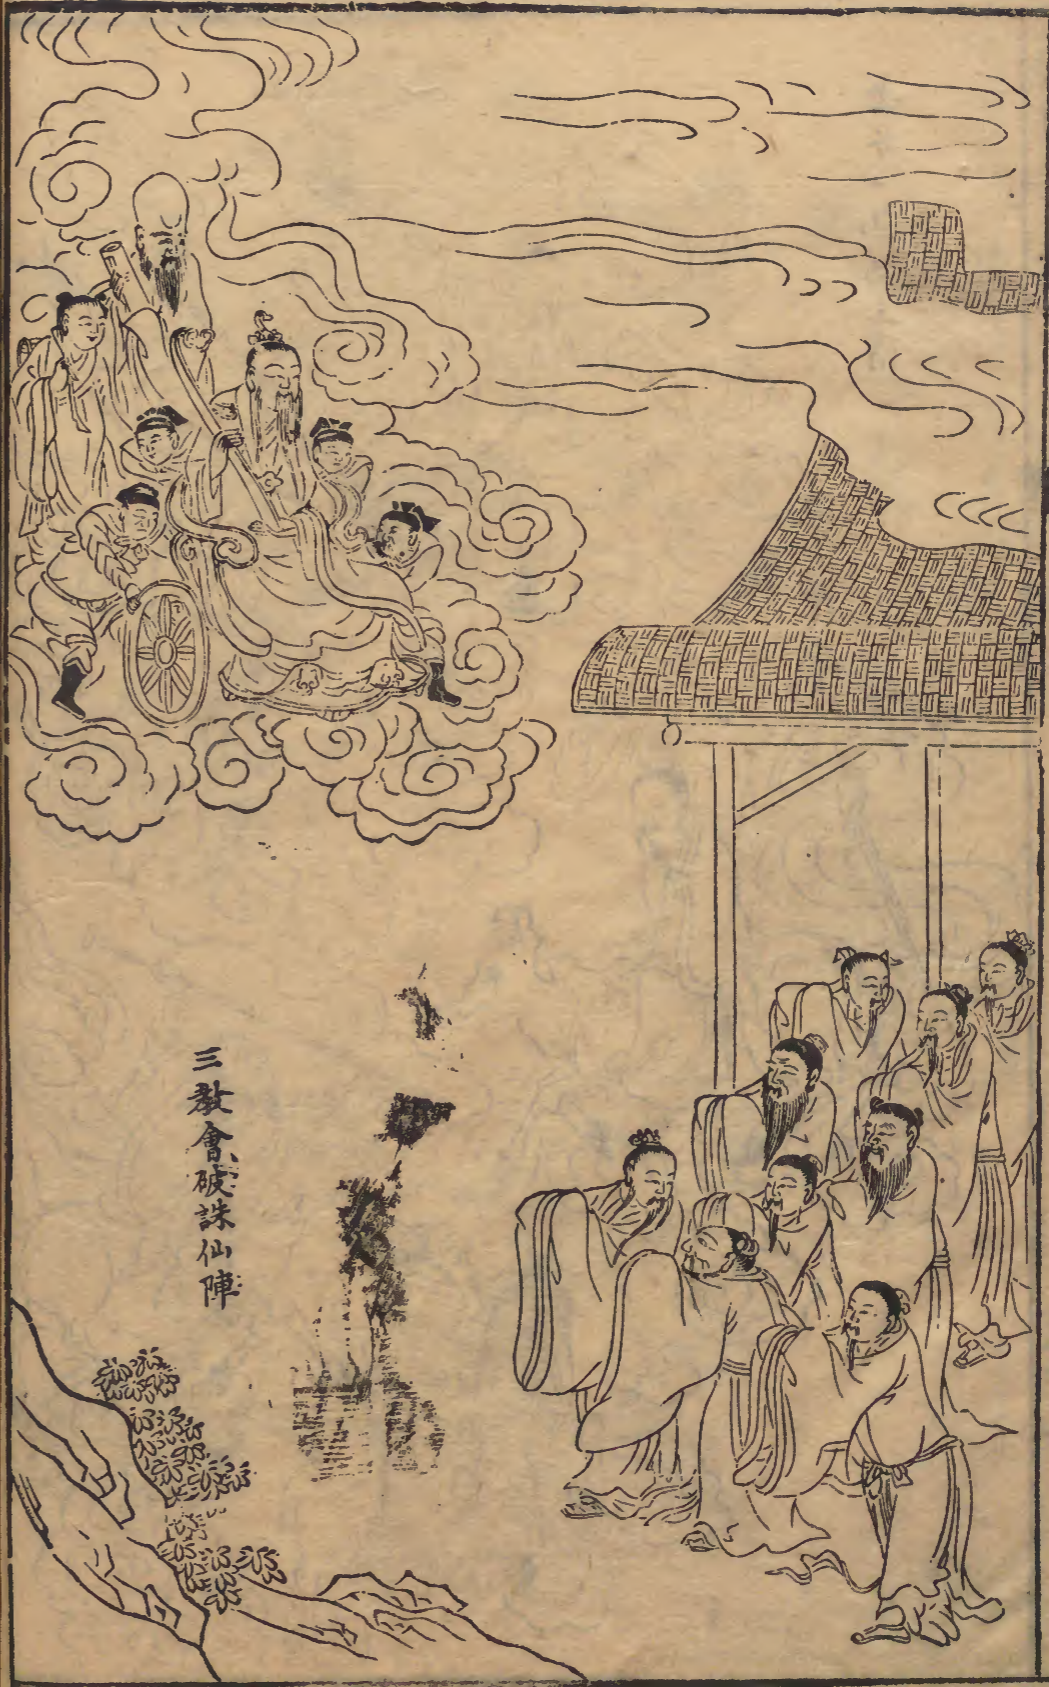 三教會破誅仙陣